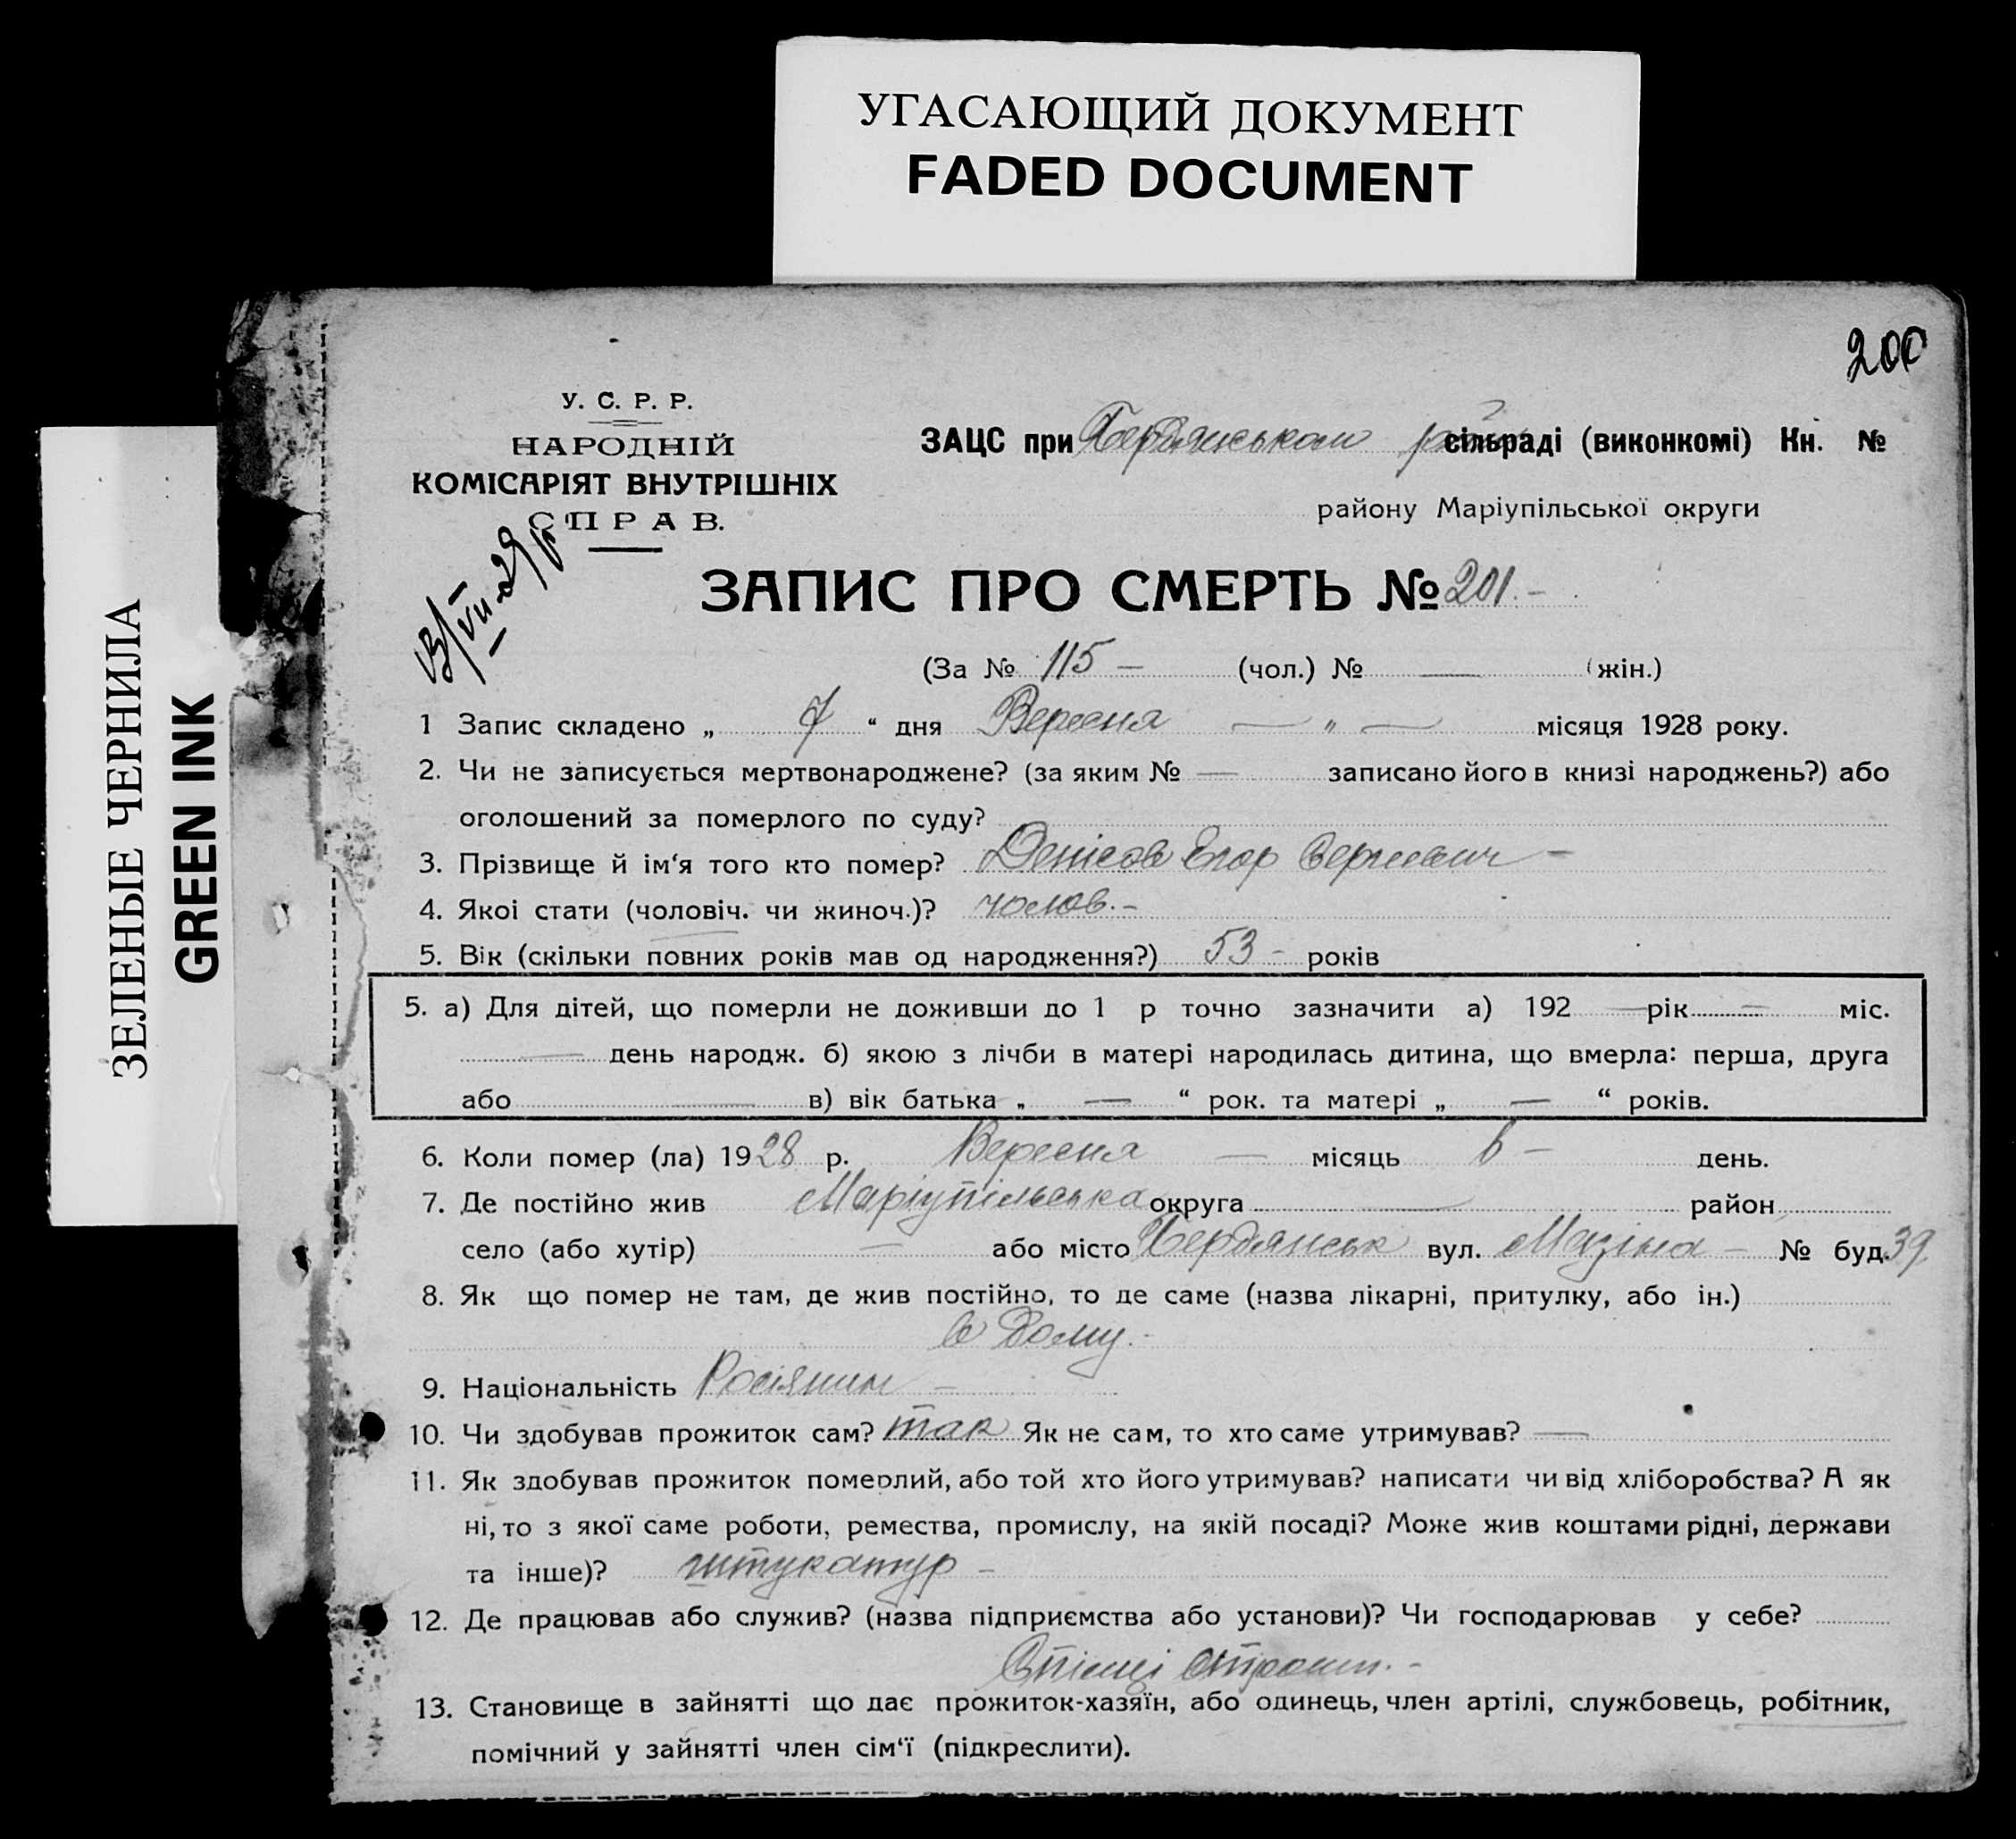 УГАСАЮЩИЙ ДОКУМЕНТ
FADED DOCUMENT
ЗЕЛЕНЫЕ ЧЕРНИЛА
GREEN INK
200
У. С. Р. Р.
НАРОДНІЙ
КОМІСАРІЯТ ВНУТРІШНІХ
СПРАВ.
ЗАЦС при Бердянськом сільраді (виконкомі) Кн. №
району Маріупільської округи
ЗАПИС ПРО СМЕРТЬ № 201.-
(За № 115 — (чол.) № — (жін.)
1 Запис складено „ 7 “ дня Вересня — „ — місяця 1928 року.
2. Чи не записується мертвонароджене? (за яким № — записано його в книзі народжень?) або
оголошений за померлого по суду?
3. Прізвище й ім‘я того кто помер? Денісов Егор Сергеевич —
4. Якоі стати (чоловіч. чи жиноч.)? чолов. -
5. Вік (скільки повних років мав од народження?) 53 - років
5. а) Для дітей, що померли не доживши до 1 р точно зазначити а) 192 — рік — міс.
— день народж. б) якою з лічби в матері народилась дитина, що вмерла: перша, друга
або — в) вік батька „ — “ рок. та матері „ — “ років.
6. Коли помер (ла) 1928 р. Вересня — місяць 6 — день.
7. Де постійно жив Маріупільська округа — район
село (або хутір) — або місто Бердянськ вул. Мазіна — № буд. 39.
8. Як що помер не там, де жив постійно, то де саме (назва лікарні, притулку, або ін.)
в дому. -
9. Національність Росіянин —
10. Чи здобував прожиток сам? так Як не сам, то хто саме утримував? —
11. Як здобував прожиток померлий, або той хто його утримував? написати чи від хліборобства? А як
ні, то з якої саме роботи, ремества, промислу, на якій посаді? Може жив коштами рідні, держави
та інше)? штукатур —
12. Де працював або служив? (назва підприємства або установи)? Чи господарював у себе?
Спілці
13. Становище в зайнятті що дає прожиток-хазяїн, або одинець, член артілі, службовець, робітник,
помічний у зайнятті член сім‘ї (підкреслити).